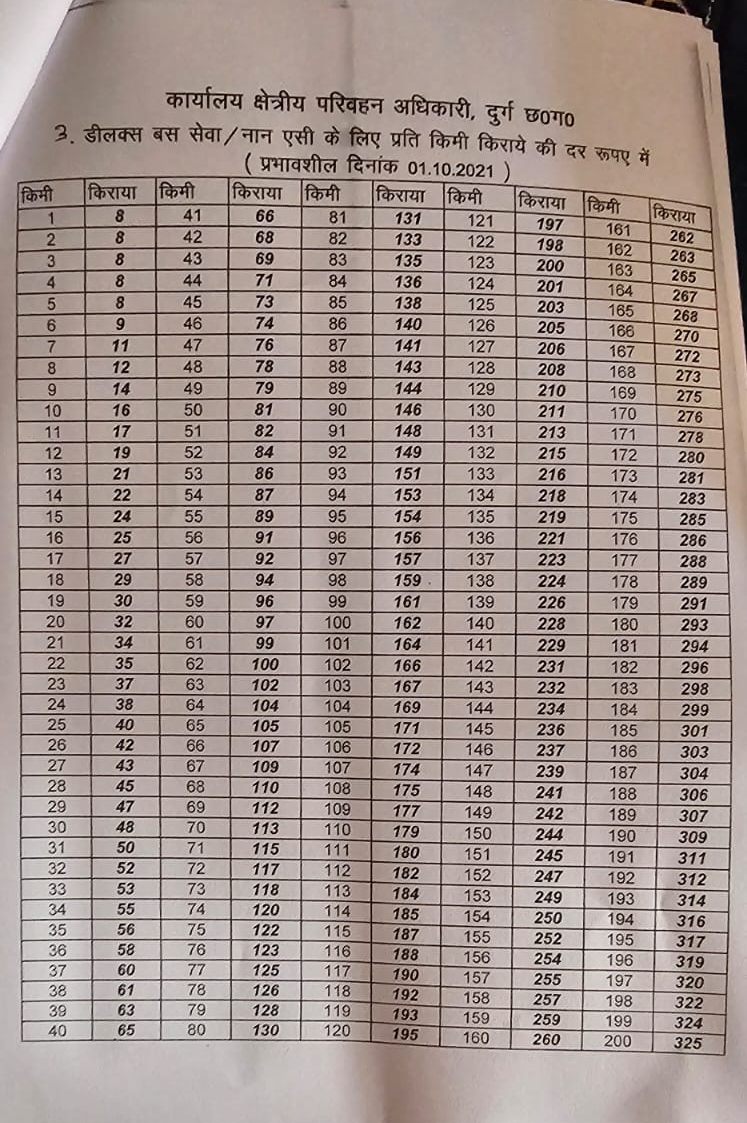 कार्यालय क्षेत्रीय परिवहन अधिकारी, दुर्ग छ0ग0
3. डीलक्स बस सेवा/नान एसी के लिए प्रति किमी किराये की दर रूपए में
( प्रभावशील दिनांक 01.10.2021 )
किमी किराया किमी किराया किमी किराया किमी किराया किमी किराया
1 8 41 66 81 131 121 197 161 262
2 8 42 68 82 133 122 198 162 263
3 8 43 69 83 135 123 200 163 265
4 8 44 71 84 136 124 201 164 267
5 8 45 73 85 138 125 203 165 268
6 9 46 74 86 140 126 205 166 270
7 11 47 76 87 141 127 206 167 272
8 12 48 78 88 143 128 208 168 273
9 14 49 79 89 144 129 210 169 275
10 16 50 81 90 146 130 211 170 276
11 17 51 82 91 148 131 213 171 278
12 19 52 84 92 149 132 215 172 280
13 21 53 86 93 151 133 216 173 281
14 22 54 87 94 153 134 218 174 283
15 24 55 89 95 154 135 219 175 285
16 25 56 91 96 156 136 221 176 286
17 27 57 92 97 157 137 223 177 288
18 29 58 94 98 159 138 224 178 289
19 30 59 96 99 161 139 226 179 291
20 32 60 97 100 162 140 228 180 293
21 34 61 99 101 164 141 229 181 294
22 35 62 100 102 166 142 231 182 296
23 37 63 102 103 167 143 232 183 298
24 38 64 104 104 169 144 234 184 299
25 40 65 105 105 171 145 236 185 301
26 42 66 107 106 172 146 237 186 303
27 43 67 109 107 174 147 239 187 304
28 45 68 110 108 175 148 241 188 306
29 47 69 112 109 177 149 242 189 307
30 48 70 113 110 179 150 244 190 309
31 50 71 115 111 180 151 245 191 311
32 52 72 117 112 182 152 247 192 312
33 53 73 118 113 184 153 249 193 314
34 55 74 120 114 185 154 250 194 316
35 56 75 122 115 187 155 252 195 317
36 58 76 123 116 188 156 254 196 319
37 60 77 125 117 190 157 255 197 320
38 61 78 126 118 192 158 257 198 322
39 63 79 128 119 193 159 259 199 324
40 65 80 130 120 195 160 260 200 325